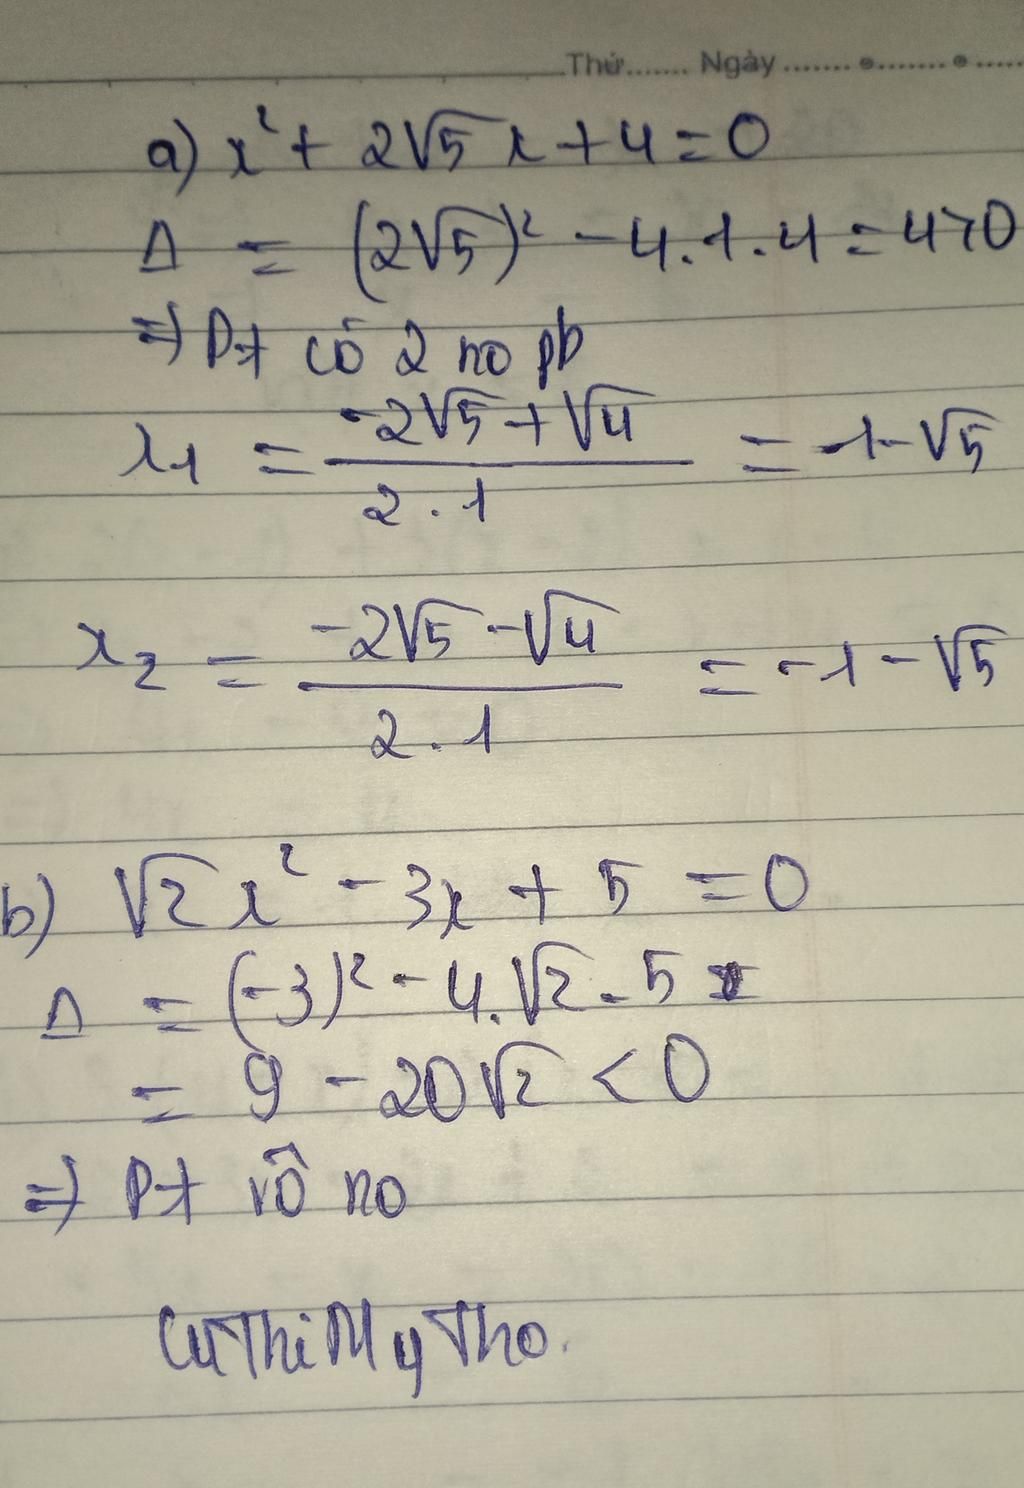 Thứ....... Ngày ....................
a) x² + 2√5 x + 4 = 0
Δ = (2√5)² - 4.1.4 = 4 > 0
⇒ Pt có 2 no pb
x₁ = (-2√5 + √4)/(2.1) = -1-√5
x₂ = (-2√5 - √4)/(2.1) = -1-√5
b) √2 x² - 3x + 5 = 0
Δ = (-3)² - 4.√2.5
= 9 - 20√2 < 0
⇒ Pt vô no
CuThiMyTho.